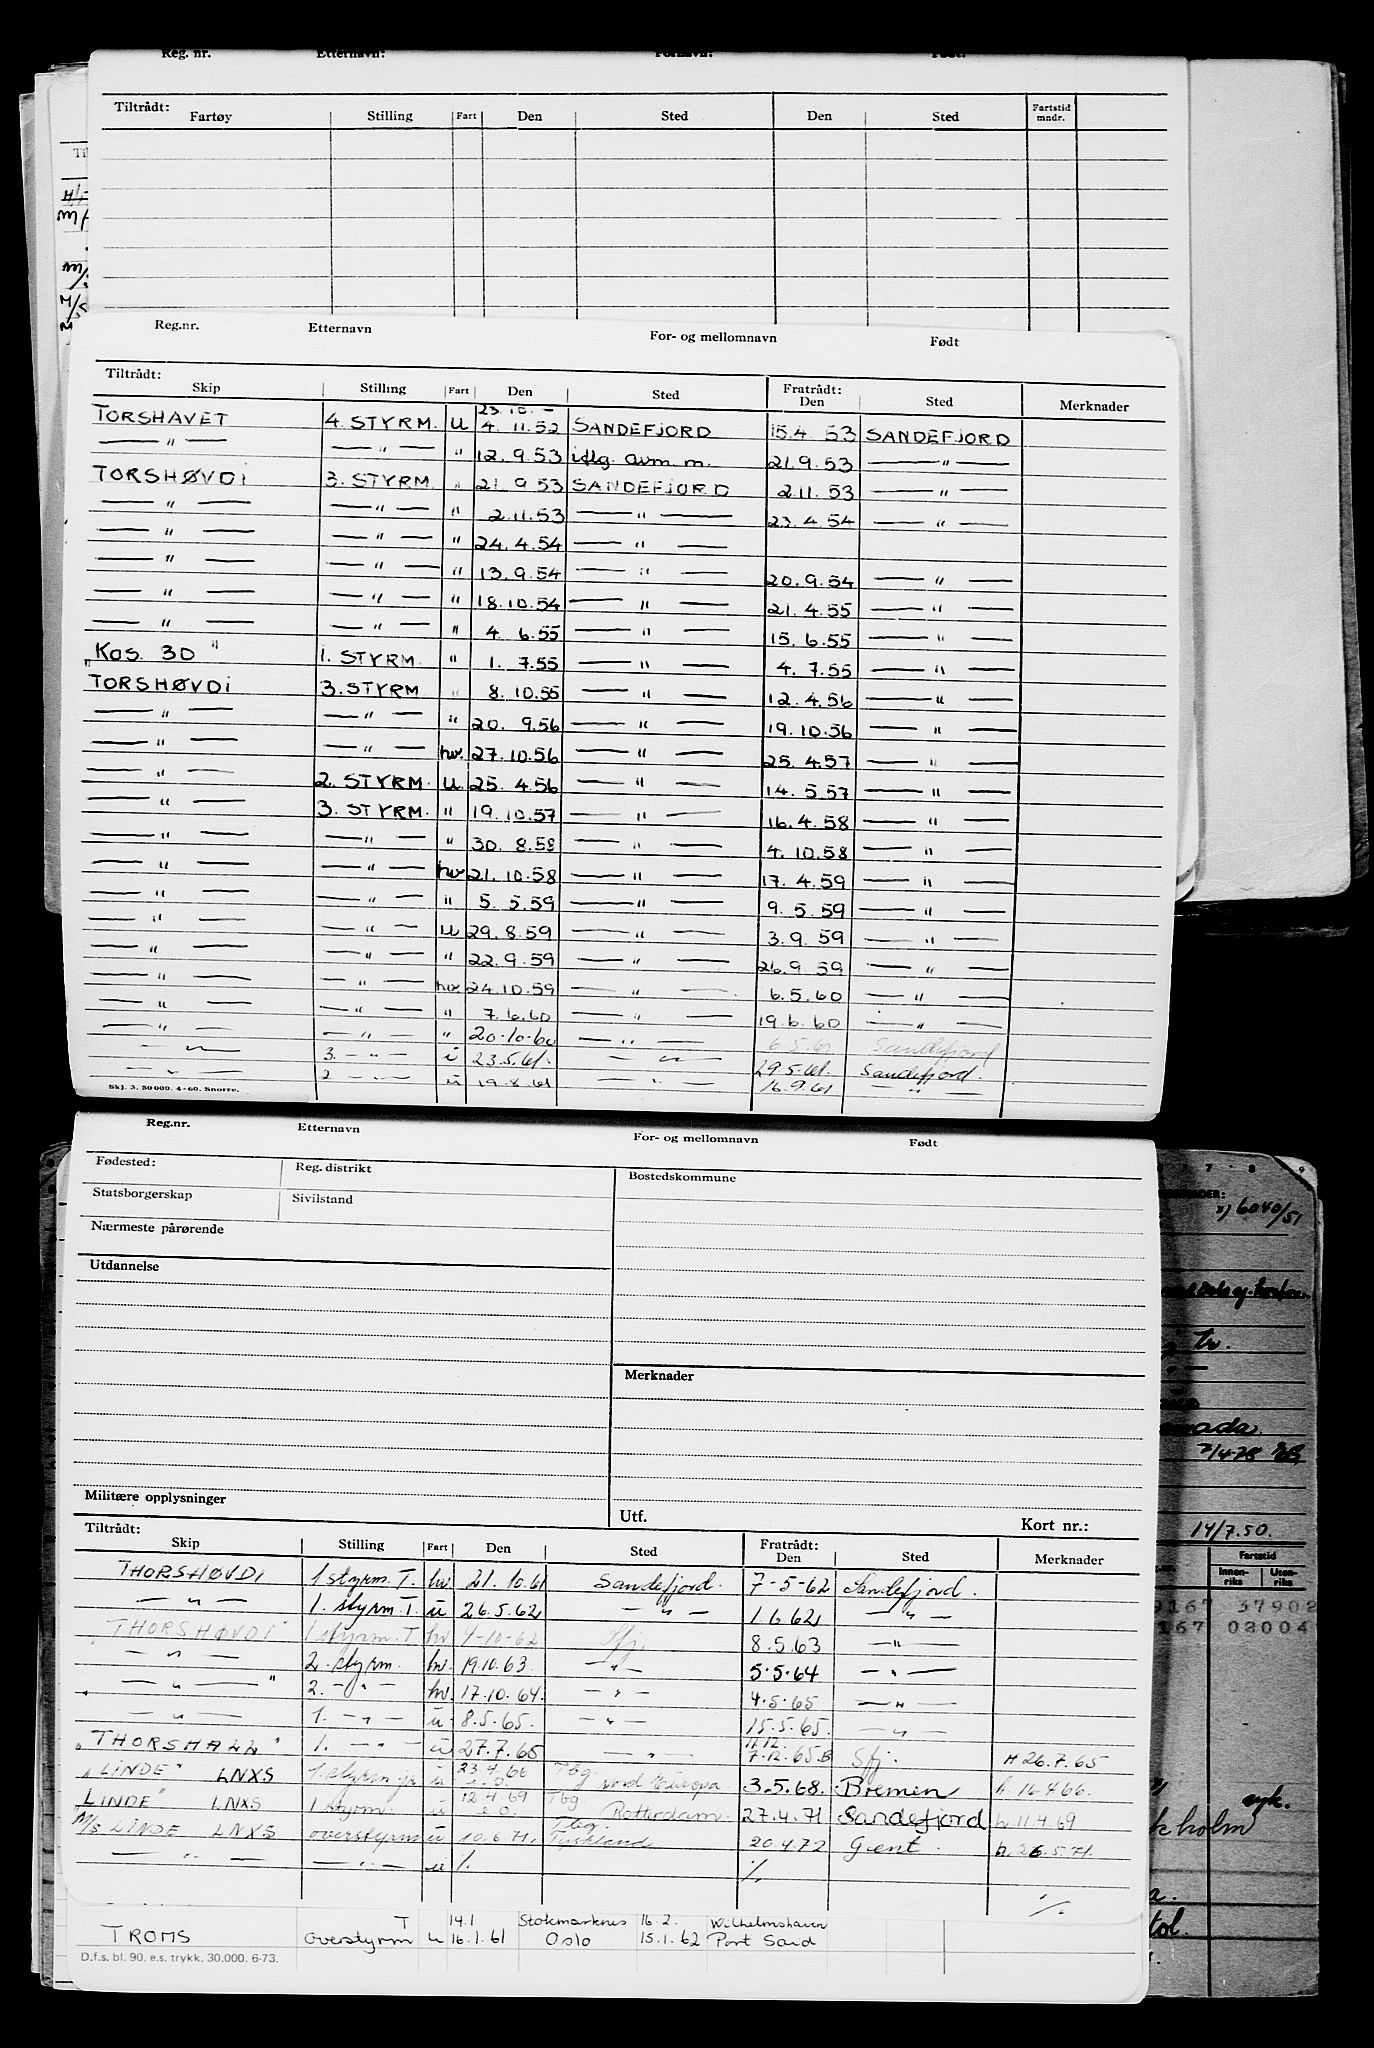 Reg. nr. Etternavn: Fornavn: Født:
Tiltrådt:
Fartøy Stilling Fart Den Sted Den Sted Fartstid mndr.
Reg.nr. Etternavn For- og mellomnavn Født
Tiltrådt: Fratrådt:
Skip Stilling Fart Den Sted Den Sted Merknader
23.10. -
TORSHAVET 4. STYRM. U 4. 11.52 SANDEFJORD 15.4 53 SANDEFJORD
— " — — " — " 12. 9.53 idlg. avm. m. 21.9.53 — " —
TORSHØVDI 3. STYRM. " 21. 9.53 SANDEFJORD 2.11. 53 — " —
— " — — " — " 2.11.53 — " — 23.4.54 — " —
— " — — " — " 24. 4.54 — " —
— " — — " — " 13. 9.54 — " — 20.9.54 — " —
— " — — " — " 18.10.54 — " — 21. 4.55 — " —
— " — — " — " 4. 6.55 — " — 15. 6.55 — " —
"Kos. 30" 1. STYRM. " 1. 7.55 — " — 4. 7.55 — " —
TORSHØVDI 3. STYRM " 8. 10.55 — " — 12. 4.56 — " —
— " — — " — " 20. 9.56 — " — 19.10.56 — " —
— " — — " — hv. 27.10.56 — " — 25. 4.57 — " —
— " — 2. STYRM. U. 25. 4.56 — " — 14. 5.57 — " —
— " — 3. STYRM. " 19.10.57 — " — 16. 4.58 — " —
— " — — " — " 30. 8.58 — " — 4. 10.58 — " —
— " — — " — hv 21.10.58 — " — 17. 4.59 — " —
— " — — " — " 5. 5.59 — " — 9. 5.59 — " —
— " — — " — u 29.8.59 — " — 3.9. 59 — " —
— " — — " — " 22.9.59 — " — 26.9 59 — " —
— " — — " — hv 24.10.59 — " — 6.5.60 — " —
— " — — " — " 7.6.60 — " — 19.6.60 — " —
— " — — " — " 20.10.60 — " — 6.5.61 Sandefjord
— " — 3. — " — u 23.5.61. — " — 29.5.61. Sandefjord.
— " — 2 — " — u 19.8.61 — " — 16.9.61 — " —
Skj. 3. 50000. 4-60. Snorre.
Reg.nr. Etternavn For- og mellomnavn Født
Fødested: Reg. distrikt Bostedskommune
Statsborgerskap Sivilstand
Nærmeste pårørende
Utdannelse
Merknader
Militære opplysninger Utf. Kort nr.:
Tiltrådt: Fratrådt:
Skip Stilling Fart Den Sted Den Sted Merknader
THORSHØVDI 1 styrm. T. hv 21. 10.61 Sandefjord. 7-5-62 Sandefjord.
— " — 1. styrm T. u 26.5.62 — " — 1.6.62 — " —
"THORSHØVDI 1 styrm. T hv 4-10-62 Sfj. 8.5.63 — " —
— " — 2. styrm. hv. 19.10.63. — " — 5.5.64 — " —
" — " — " 2. — " — hv. 17.10.64. — " — 4.5.65 — " —
— " — 1. — " — u. 8.5.65. — " — 15.5.65. — " —
11.12.
"THORSHALL" 1. — " — u 27.7.65 — " — 7.12.65 B Sfj. H 26.7.65
23.4.66 Tbg.
"LINDE" LNXS 1. styrm jr u e.o. nord Europa 3.5.68. Bremen h. 16.4.66.
12.4 69 Tbg
LINDE" LNXS 1 styrm. u e.o. Rotterdam. 27.4.71 Sandefjord h. 11.4.69
Tbg.
M/S LINDE LNXS overstyrm u 10.6.71. Tyskland 20.4.72 Gent. h. 26.5.71.
— " — — " — u ./. ./.
./.
T 14.1 Stokmarknes 16.2. Wilhelmshaven
TROMS overstyrm u 16.1.61 Oslo 15.1.62 Port Said
D.f.s. bl. 90. e.s. trykk. 30.000. 6-73.
7 - 8 9
6040/51
Tr.
7/4-78
14/7.50.
Fartstid
Innenriks Utenriks
167 37902
167 02004
syk.